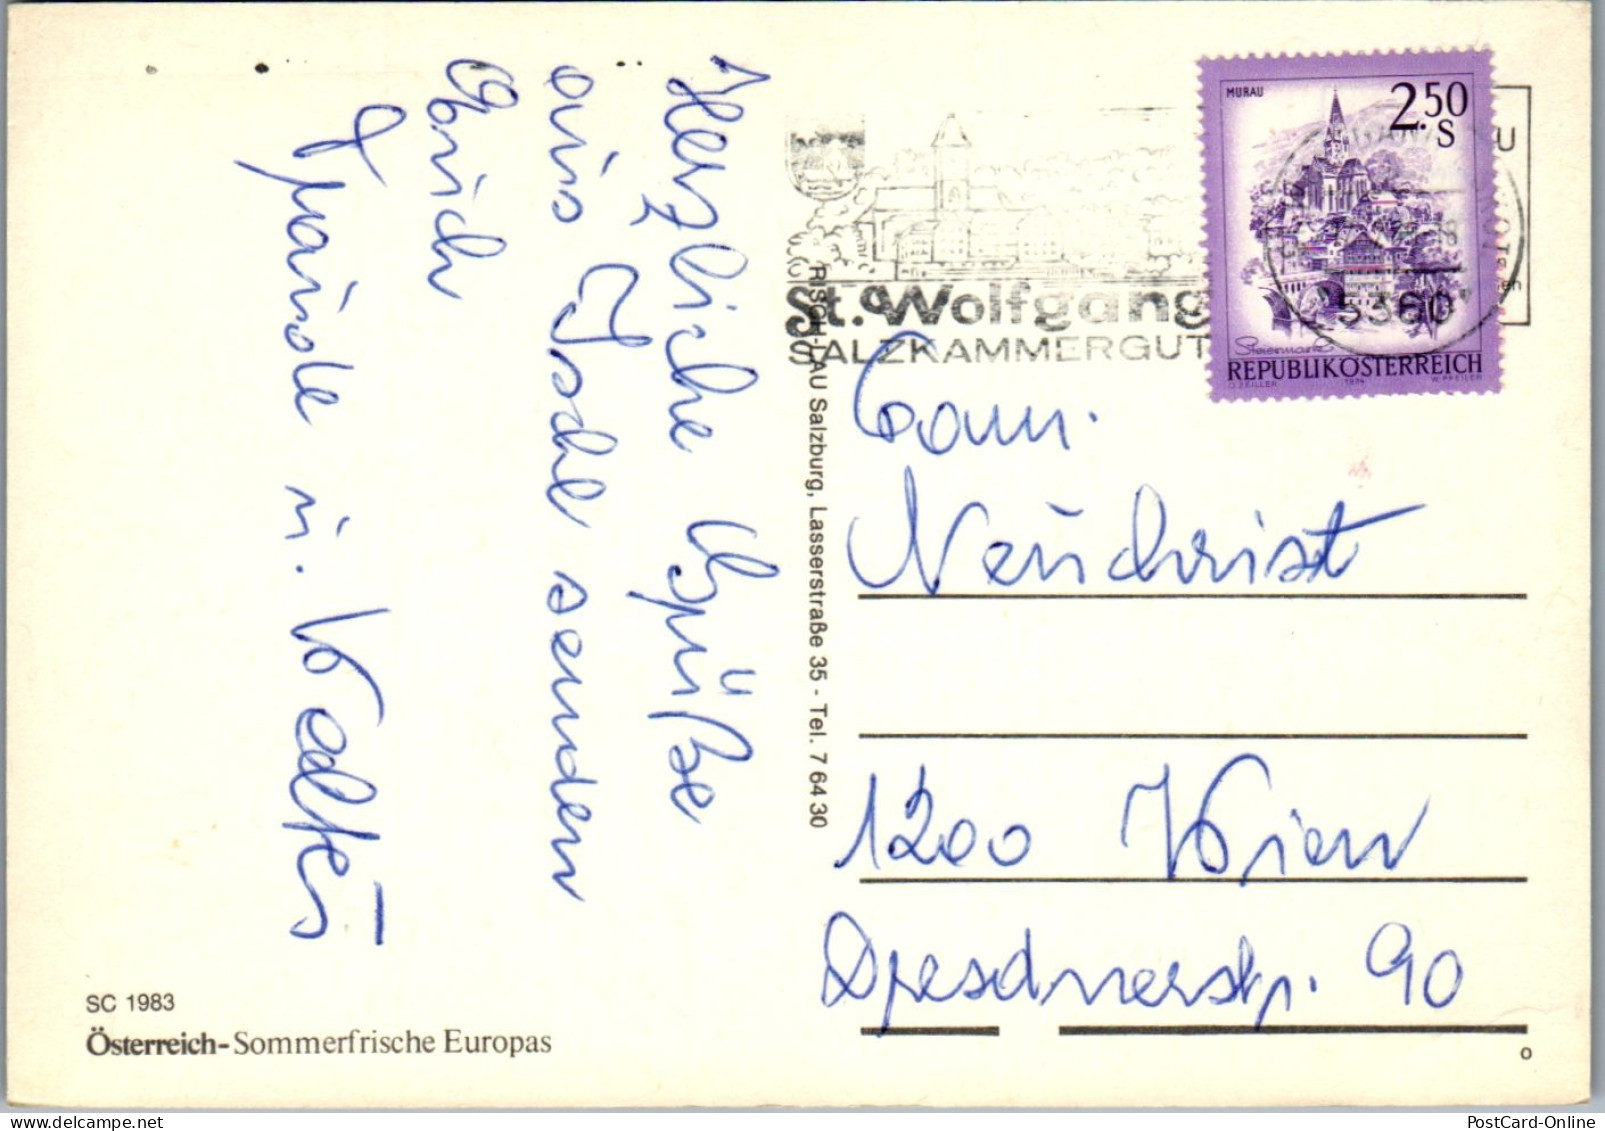 Herzliche Grüße
aus Ischl senden
Erich
Traude u.
MURAU
2.50
S
Steiermark
REPUBLIK ÖSTERREICH
O. ZEILLER 1974 W. PFEILER
5360
St. Wolfgang
SALZKAMMERGUT
RISCH-LAU Salzburg, Lasserstraße 35 - Tel. 7 64 30
Fam.
Neuchrist
1200 Wien
Dresdnerstr. 90
SC 1983
Österreich-Sommerfrische Europas
o
PostCard-Online